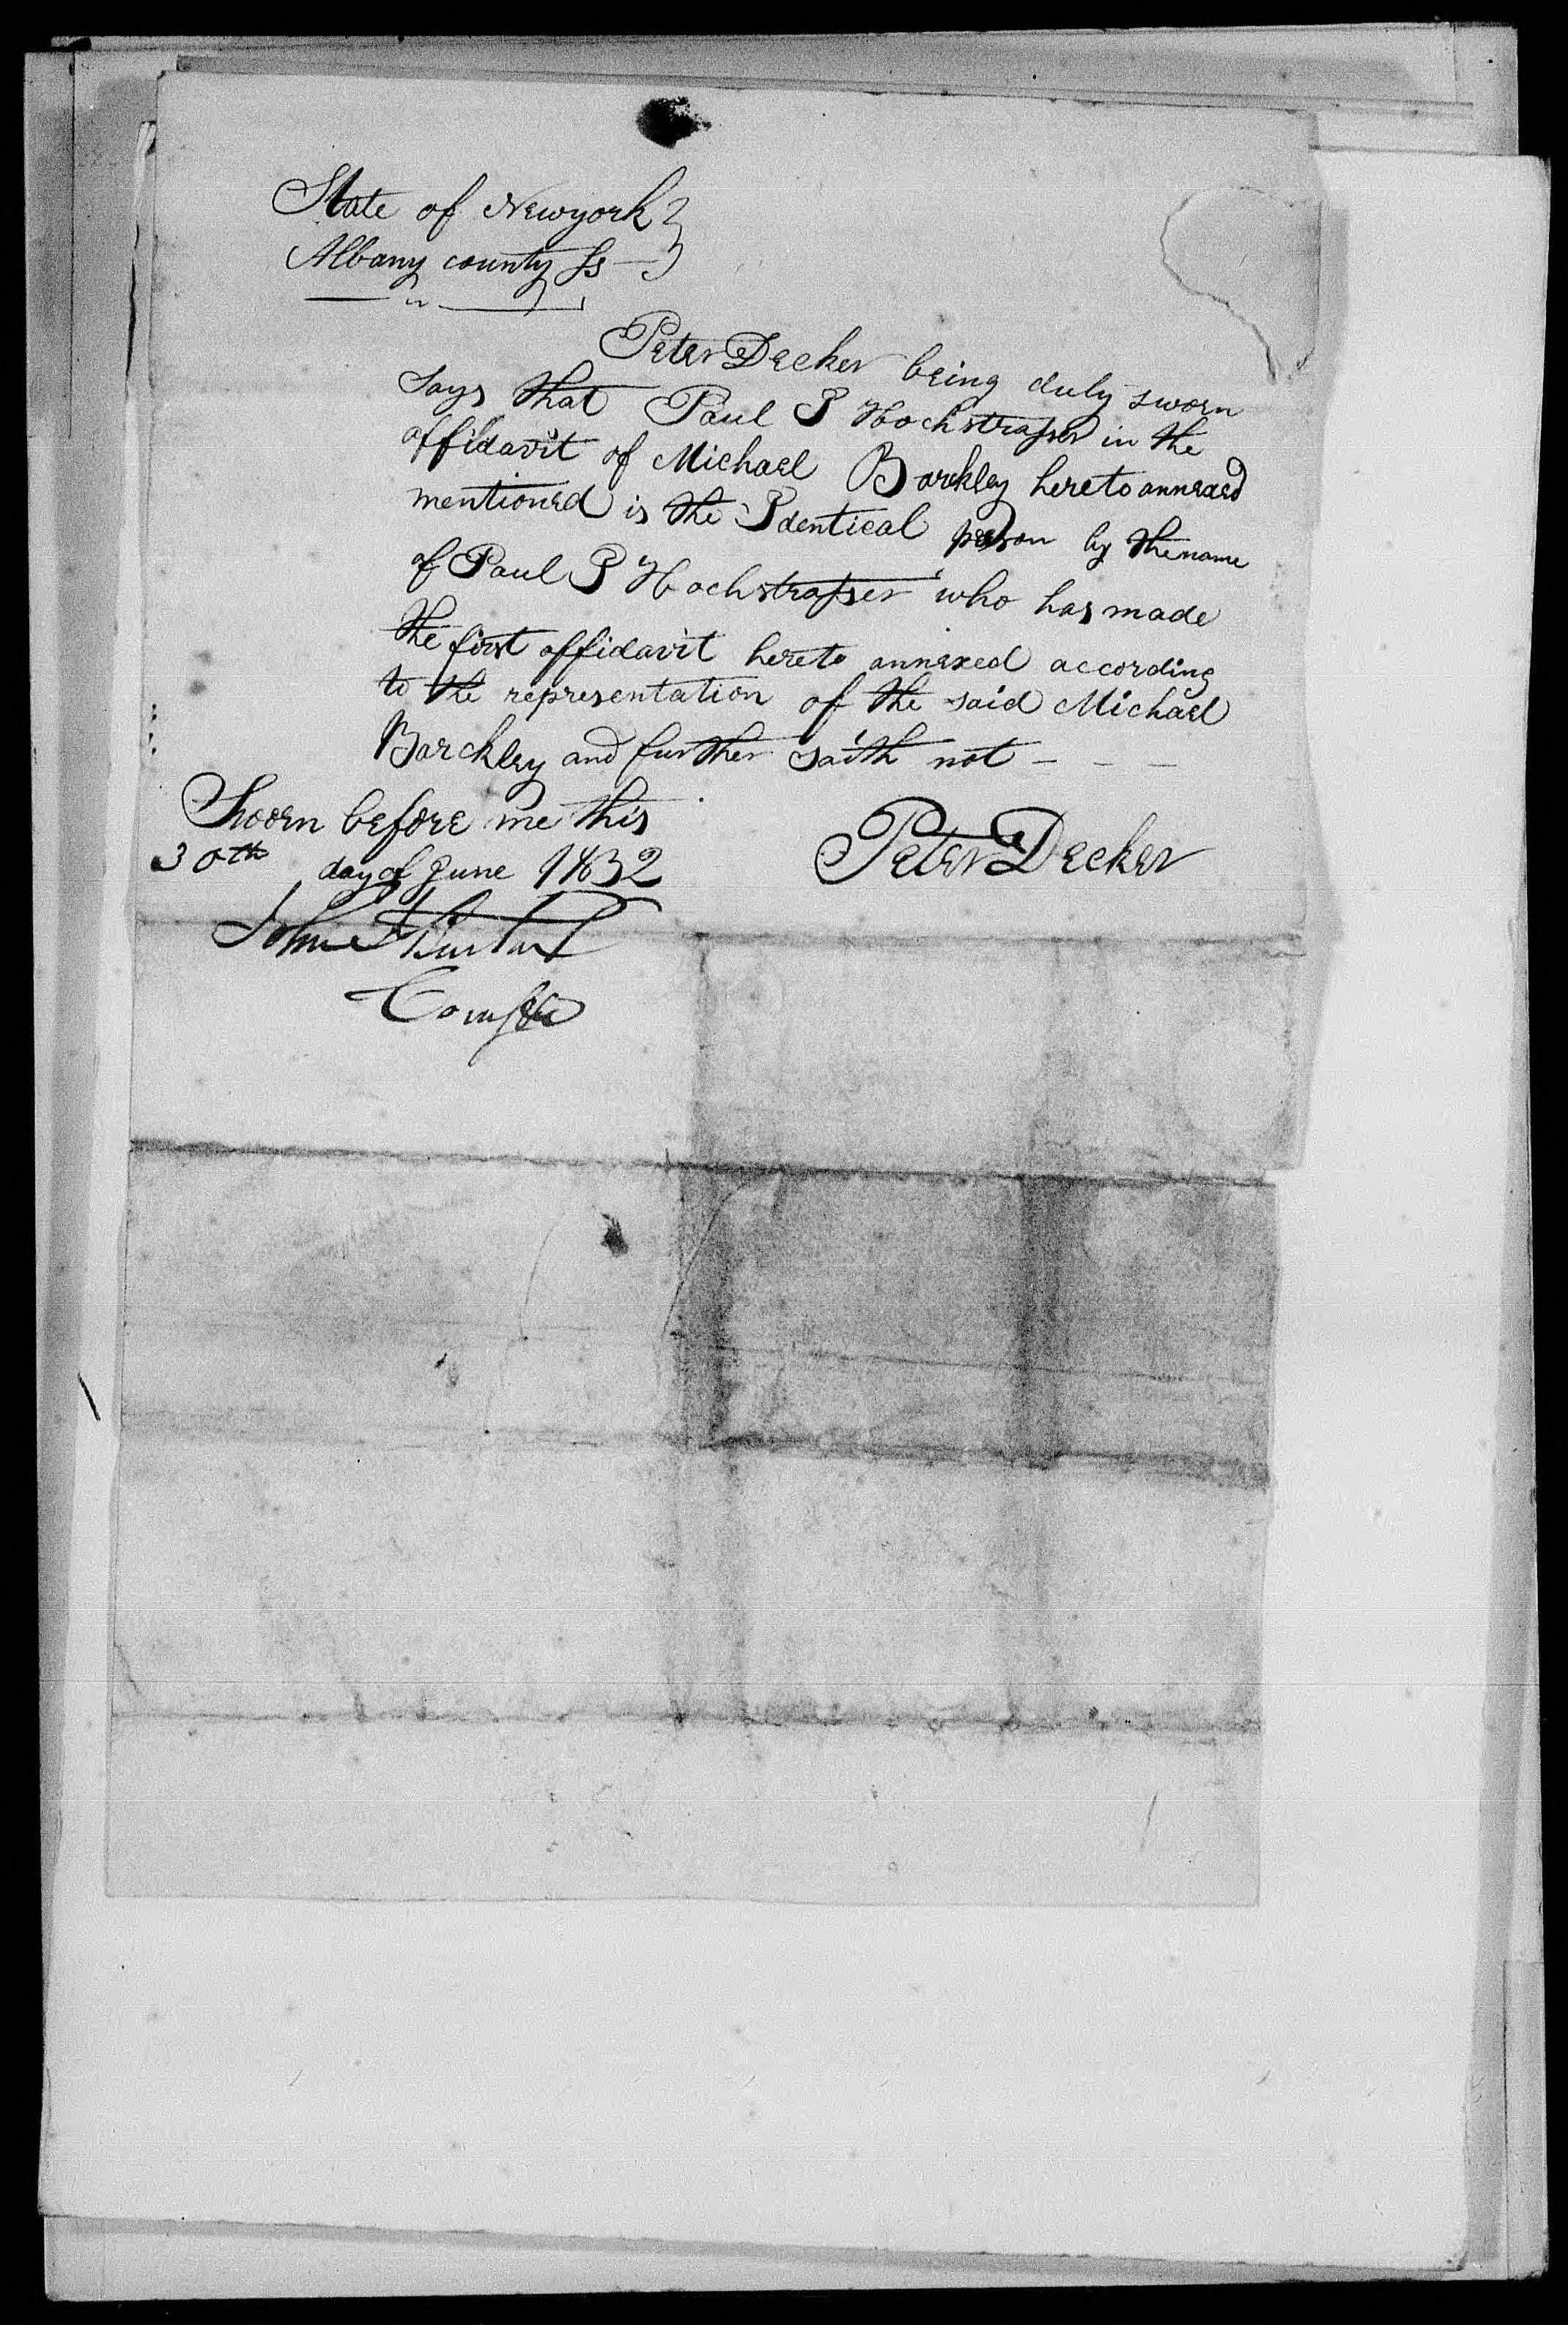 State of Newyork
Albany county ss
Peter Decker being duly sworn
Says that Paul P Hochstrasser in the
affidavit of Michael Barckley hereto annexed
mentioned is the Identical person by the name
of Paul P Hochstrasser who has made
the first affidavit hereto annexed according
to the representation of the said Michael
Barckley and further saith not - - -
Sworn before me this
30th day of June 1832
Peter Decker
John